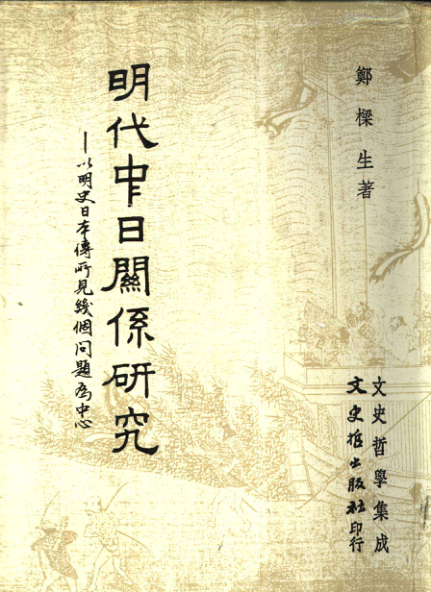 鄭樑生著
明代中日關係研究
—以明史日本傳所見幾個问題為中心
文史哲學集成
文史哲出版社印行